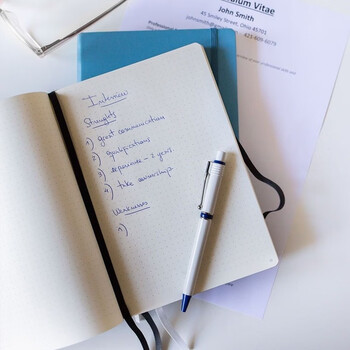 Curriculum Vitae
John Smith
45 Smiley Street, Ohio 45701
423-609-6079
Interview
Strenghts
1) great communication
2) qualifications
3) experience - 2 years
4) take ownership
Weaknesses
1)